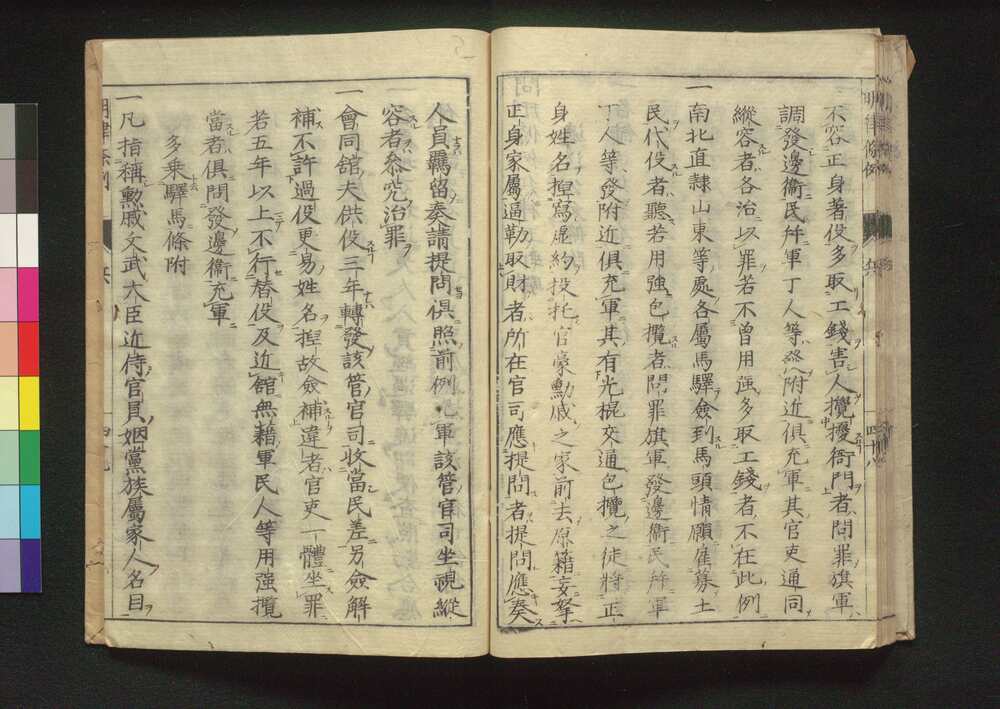 不容正身著役多取工錢害人攪擾衙門者問罪旗軍
調發邊衛民并軍丁人等發附近俱充軍其官吏通同
縱容者各治以罪若不曾用強多取工錢者不在此例
一南北直隷山東等處各屬馬驛僉到馬頭情願雇募土
民代役者聽若用強包攬者問罪旗軍發邊衛民并軍
丁人等發附近俱充軍其有光棍交通包攬之徒將正
身姓名揑寫虛約投托官豪勳戚之家前去原籍妄拏
正身家屬逼勒取財者所在官司應提問者提問應奏
人員羈留奏請提問俱照前例充軍該管官司坐視縱
容者叅究治罪
一會同舘夫供役三年轉發該管官司收當民差另僉解
補不許過役更易姓名揑故僉補違者官吏一體坐罪
若五年以上不行替役及近舘無藉軍民人等用强攬
當者俱問發邊衛充軍
多乘驛馬條附
一凡指稱勳戚文武大臣近侍官員姻黨族屬家人名目
明律條例
四十八